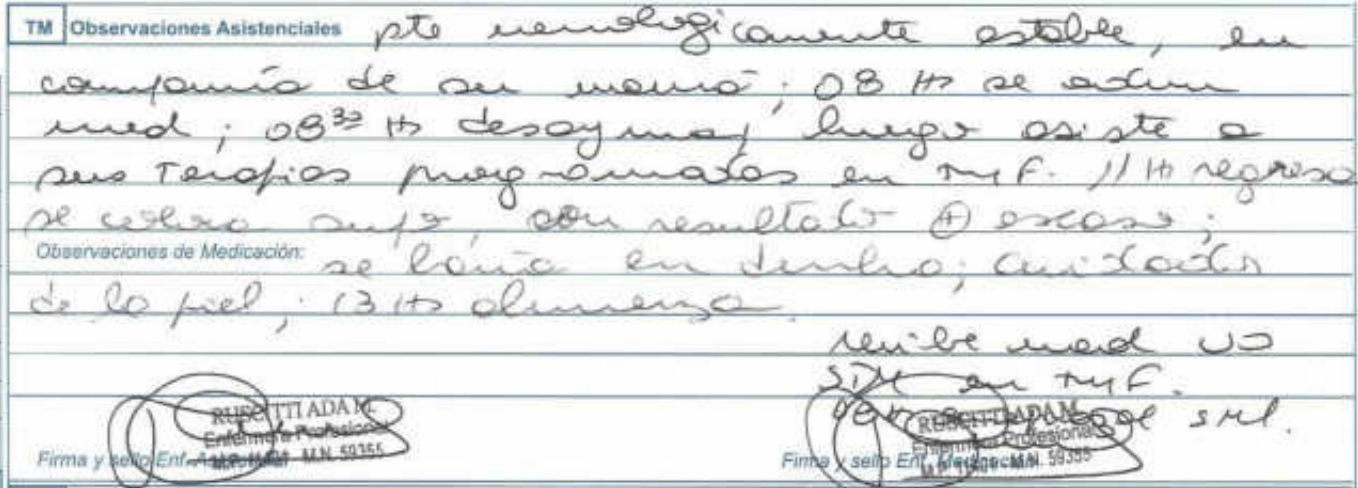 TM Observaciones Asistenciales pte neurologicamente estable, en
compañía de su mamá; 08 Hs se adm
med; 08³⁰ Hs desayuna, luego asiste a
sus Terapias programadas en MyF. 11 Hs regresa
se coloca sup, con resultado ⊕ escaso;
Observaciones de Medicación:
se baña en ducha; cuidados
de la piel; 13 Hs almuerza.
recibe med VO
en MyF.
RUSCITTI ADA M.
Enfermera Profesional
M.N. 59355
Firma y sello Enf.
RUSCITTI ADA M.
Enfermera Profesional
M.N. 59355
Firma y sello Enf.